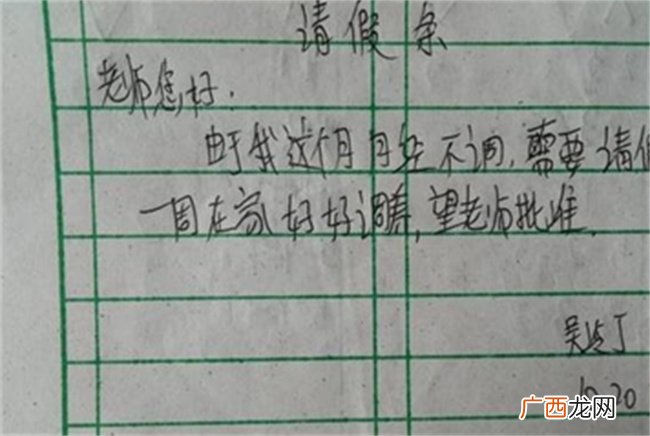 请假条
老师您好.
由于我这个月月经不调,需要请假
一周在家好好调养,望老师批准.
吴 丁
10.20
广西龙网